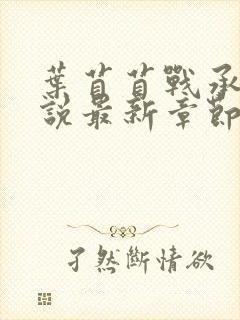 葉苜苜戰承
說最新章節
孑然斷情欲